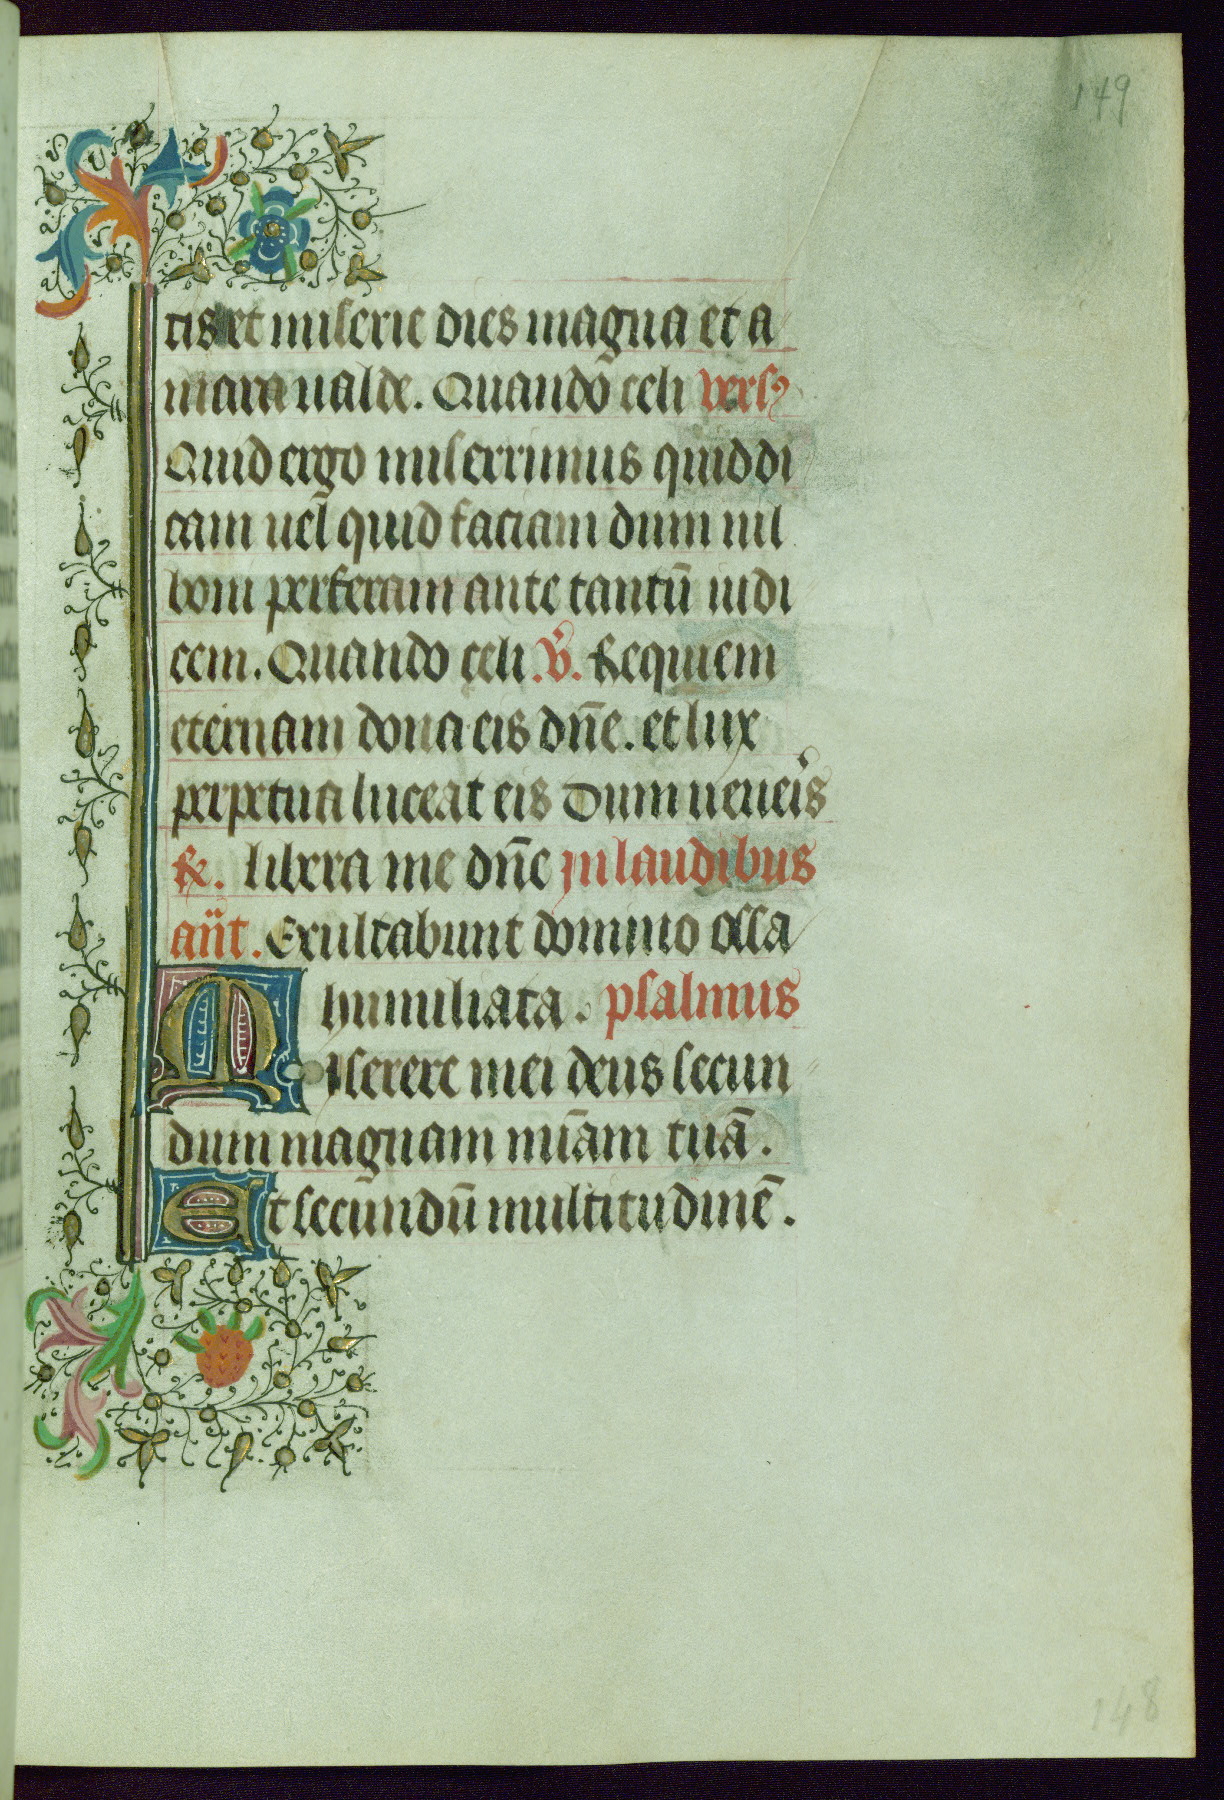 149
tis et miserie dies magna et a
mara ualde. Quando celi vers9
Quid ergo miserrimus quid di
cam uel̄ quid faciam dum nil
boni perferam ante tantū iudi
cem. Quando celi .V̄. Requiem
eternam dona eis dn̄e. et lux
perpetua luceat eis Dum ueneis
R. libera me dn̄e In laudibus
an̄t. Exultabunt domino ossa
humiliata. psalmus
Miserere mei deus secun
dum magnam mīam tuā.
Et secundū multitudinē.
148